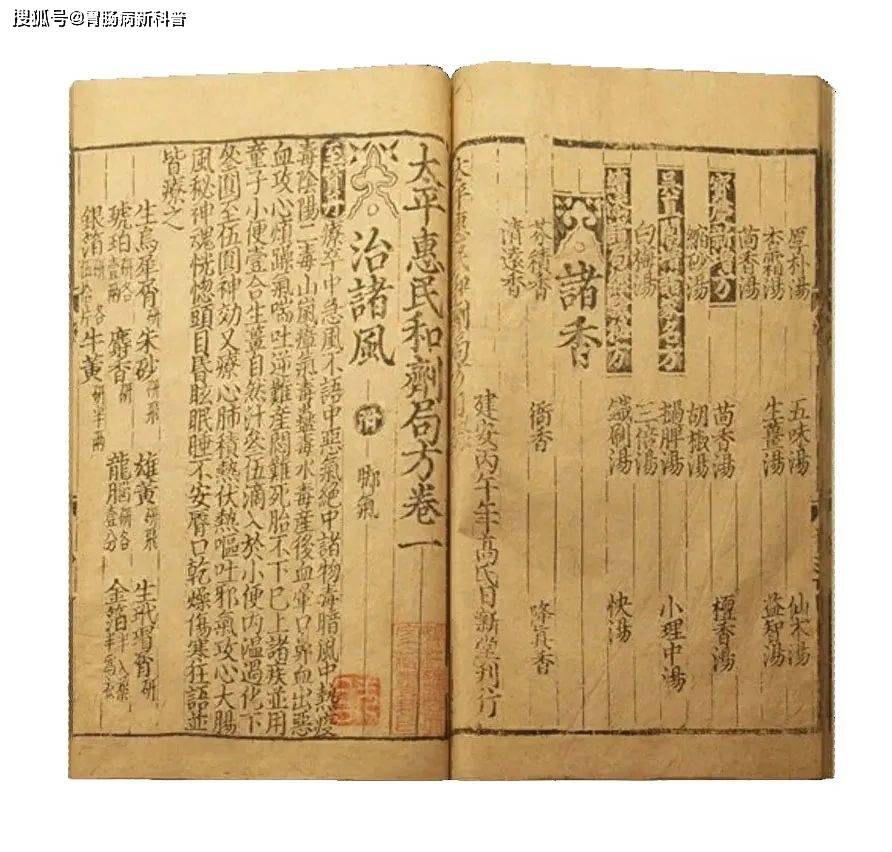 搜狐号@胃肠病新科普
厚朴湯 五味湯 仙术湯
杏霜湯 生薑湯 益智湯
茴香湯
寶慶新增方
縮砂湯 胡椒湯 檀香湯
茴香湯
吳直閣增諸家名方
白梅湯 三倍湯 小理中湯
鐵刷湯 快湯
諸香
芬積香 衙香 降真香
清遠香
建安丙午年髙氏日新堂刊行
太平惠民和劑局方
太平惠民和劑局方卷一
治諸風 附 脚氣
至寶丹 療卒中急風不語中惡氣絕中諸物毒暗風中熱疫
毒陰陽二毒山嵐瘴氣毒蠱毒水毒産後血暈口鼻血出惡
血攻心煩躁氣喘吐逆難産悶亂死胎不下已上諸疾並用
童子小便壹合生薑自然汁叁伍滴入於小便内温過化下
叁圓至伍圓神効又療心肺積熱伏熱嘔吐邪氣攻心大腸
風秘神魂恍惚頭目昏眩眠睡不安唇口乾燥傷寒狂語並
皆療之
生烏犀屑研 朱砂研飛 雄黄研飛 生玳瑁屑研
琥珀研各壹兩 麝香研 龍腦研各壹分 金箔半入藥半爲衣
銀箔研 牛黄研半兩